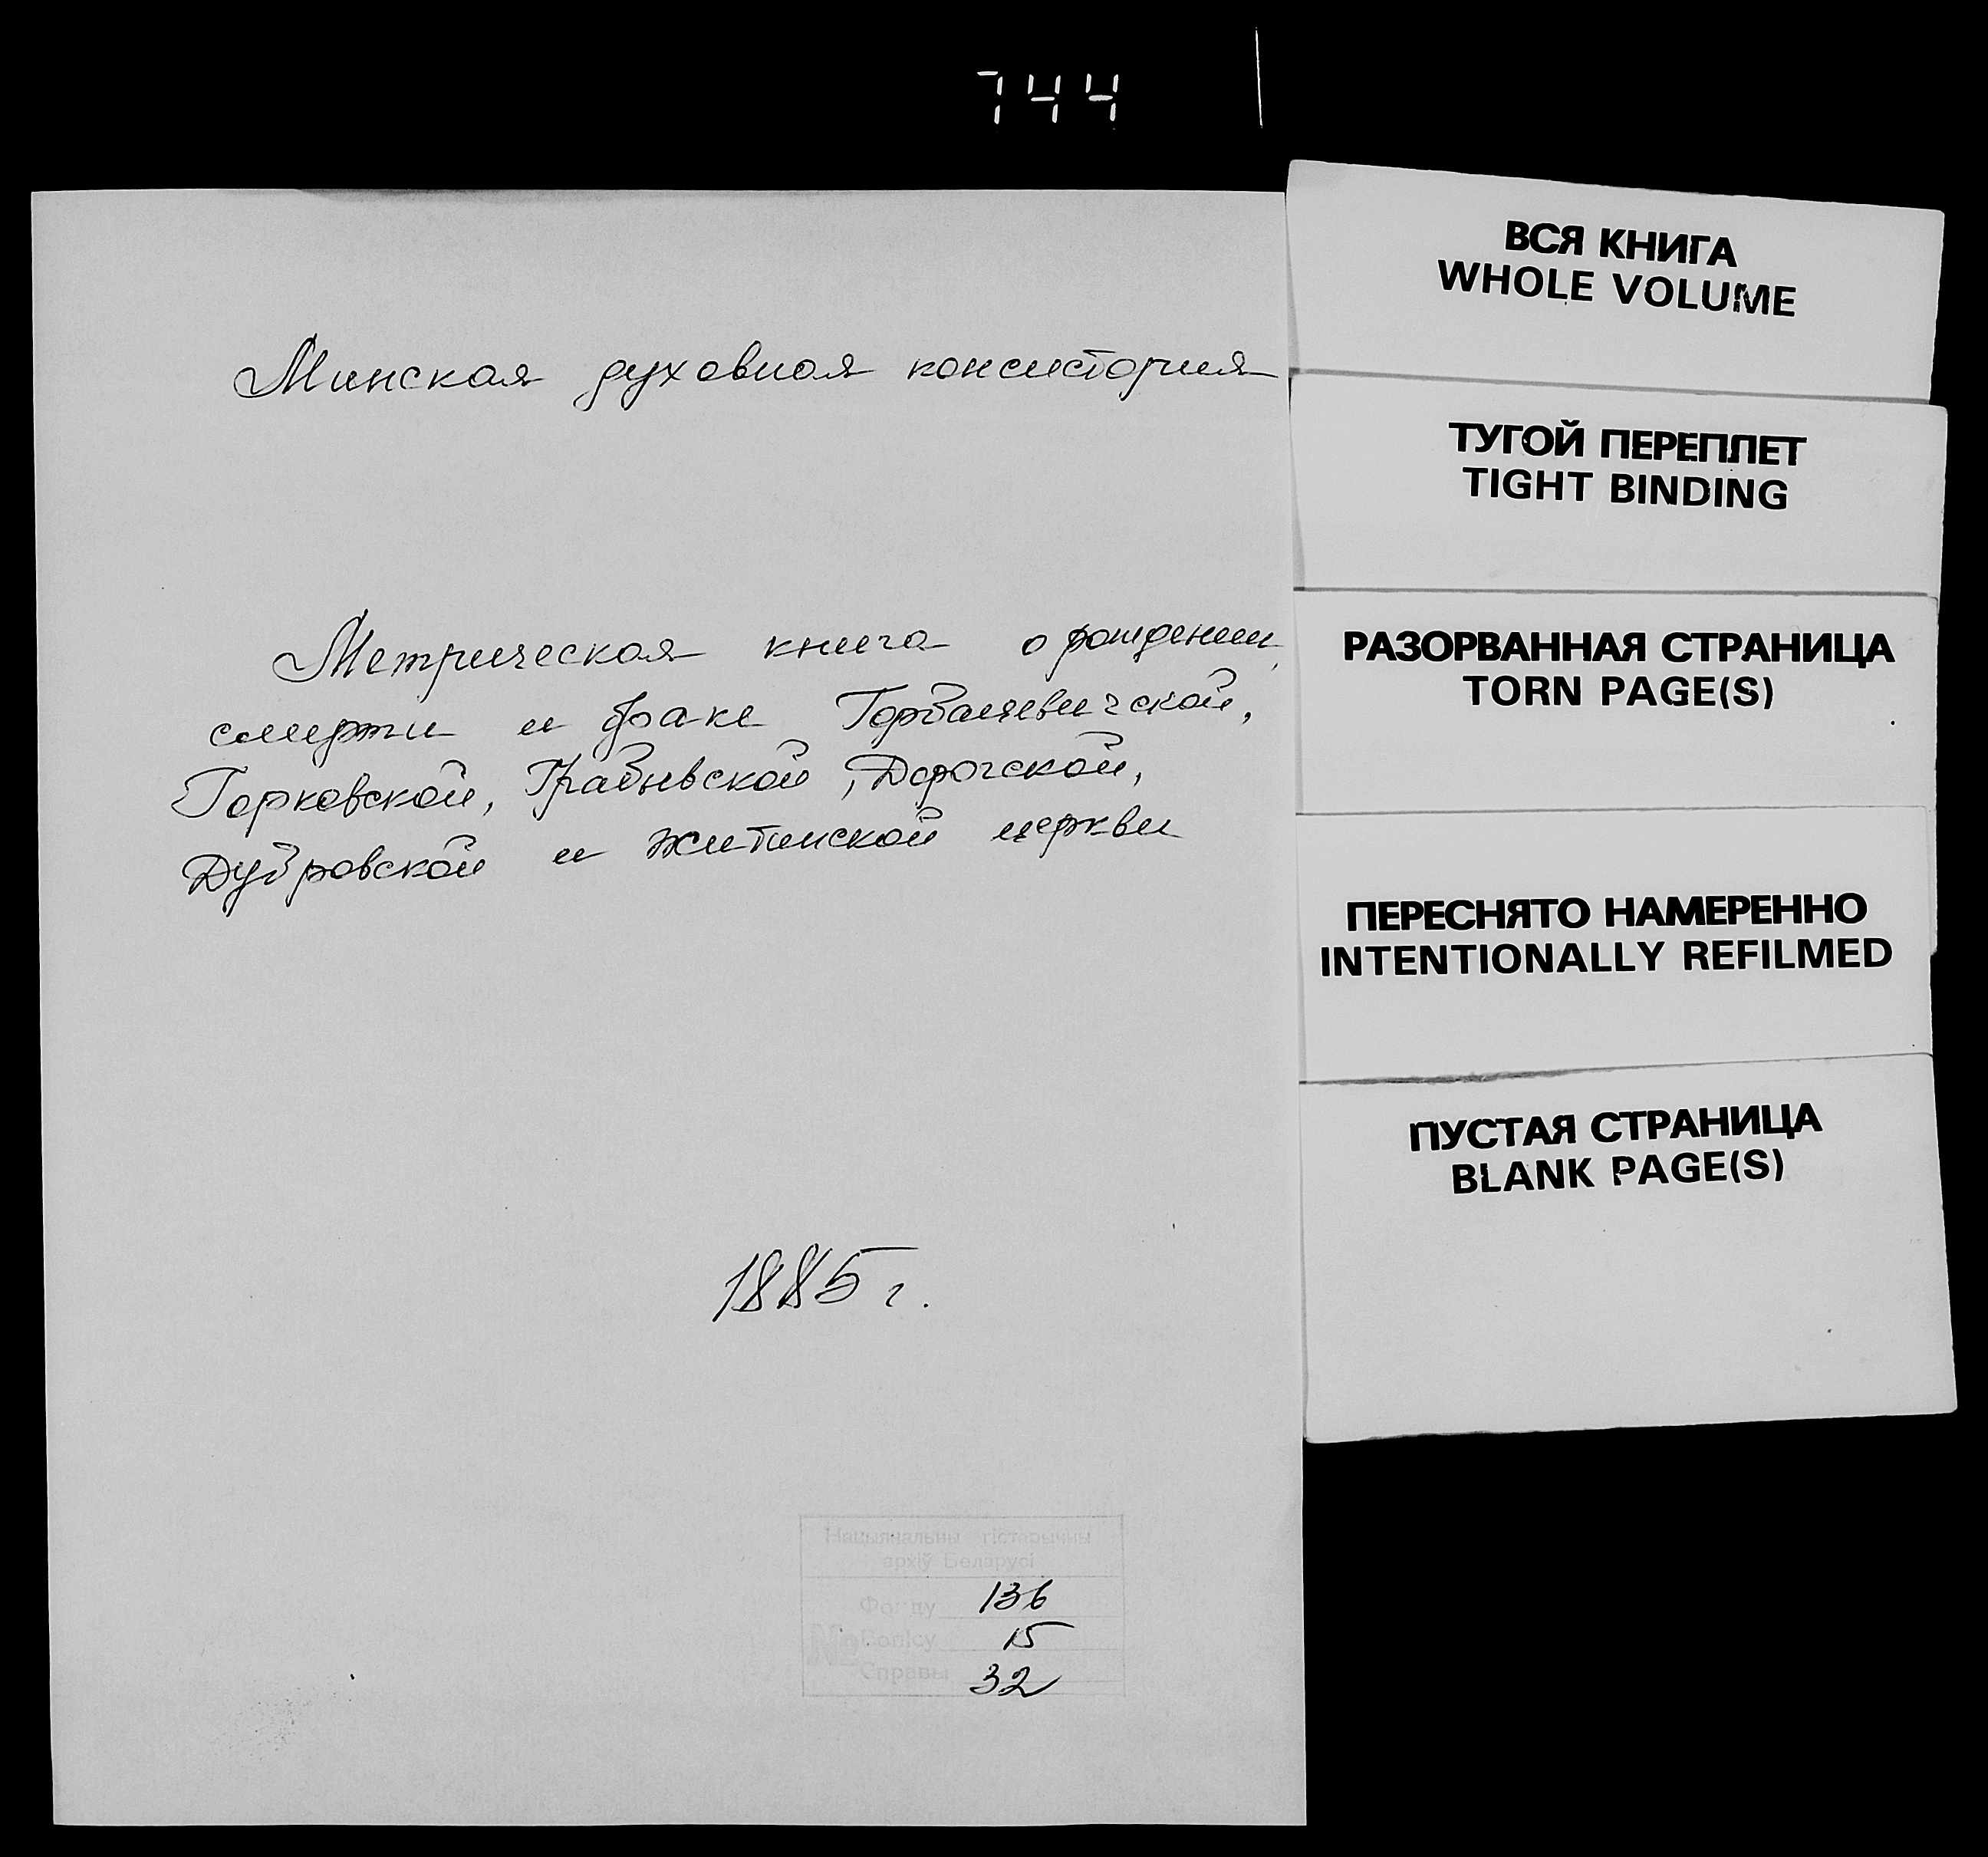 744
Минская духовная консистория
Метрическая книга о рождении,
смерти и браке Горбацевичской,
Горковской, Грабьевской, Дорогской,
Дубровской и Житинской церкви
1885 г.
Нацыянальны гістарычны
архіў Беларусі
Фонду 136
№ Вопісу 15
Справы 32
ВСЯ КНИГА
WHOLE VOLUME
ТУГОЙ ПЕРЕПЛЕТ
TIGHT BINDING
РАЗОРВАННАЯ СТРАНИЦА
TORN PAGE(S)
ПЕРЕСНЯТО НАМЕРЕННО
INTENTIONALLY REFILMED
ПУСТАЯ СТРАНИЦА
BLANK PAGE(S)